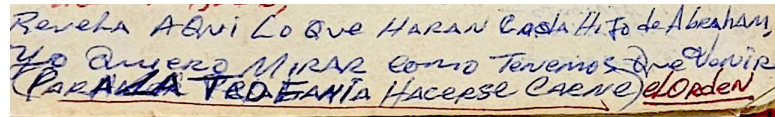 Revela AQUi Lo QUe HARAN Cada HiJo de Abraham,
Yo QUiERO MiRAR como Tenemos Que Venir
(PARA LA TEOFANíA HACERSE CARNE) eLORdeN